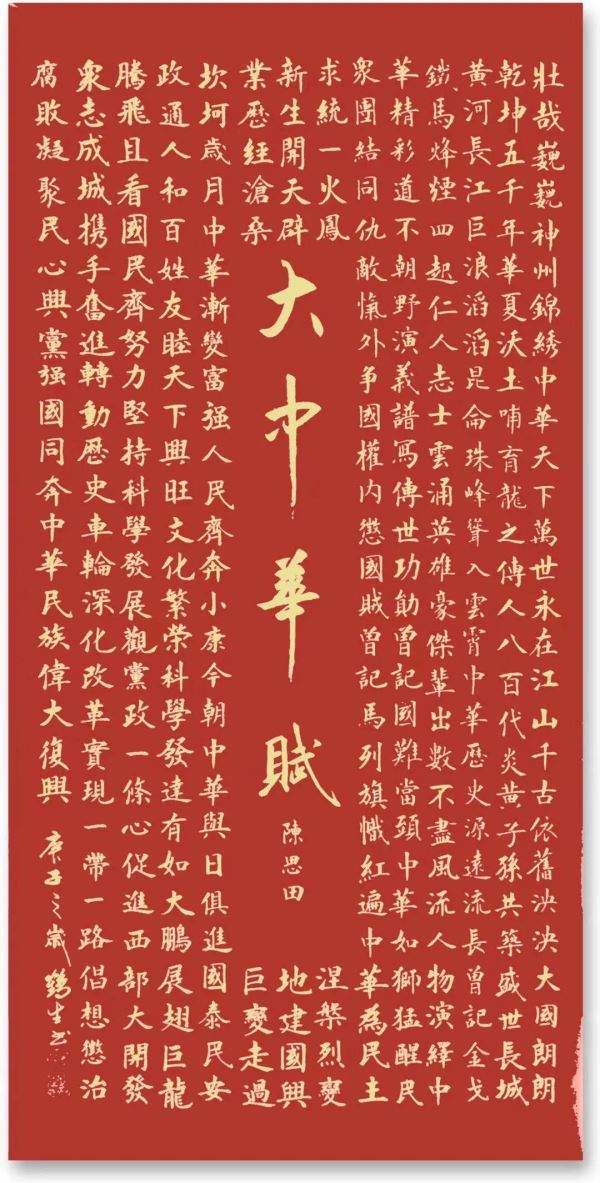 壯哉巍巍神州錦綉中華天下萬世永在江山千古依舊泱泱大國朗朗
乾坤五千年華夏沃土哺育龍之傳人八百代炎黃子孫共築盛世長城
黃河長江巨浪滔滔昆侖珠峰聳入雲霄中華歷史源遠流長曾記金戈
鐵馬烽煙四起仁人志士雲涌英雄豪傑輩出數不盡風流人物演繹中
華精彩道不朝野演義譜寫傳世功勛曾記國難當頭中華如獅猛醒民
衆團結同仇敵愾外争國權内懲國賊曾記馬列旗幟紅遍中華為民主
求統一火鳳涅槃烈變
新生開天辟地建國興
業歷經滄桑巨變走過
大中華賦
陳思田
坎坷歲月中華漸變富强人民齊奔小康今朝中華與日俱進國泰民安
政通人和百姓友睦天下興旺文化繁荣科學發達有如大鵬展翅巨龍
騰飛且看國民齊努力堅持科學發展觀黨政一條心促進西部大開發
衆志成城携手奮進轉動歷史車輪深化改革實現一帶一路倡想懲治
腐敗凝聚民心興黨强國同奔中華民族偉大復興
庚子之歲